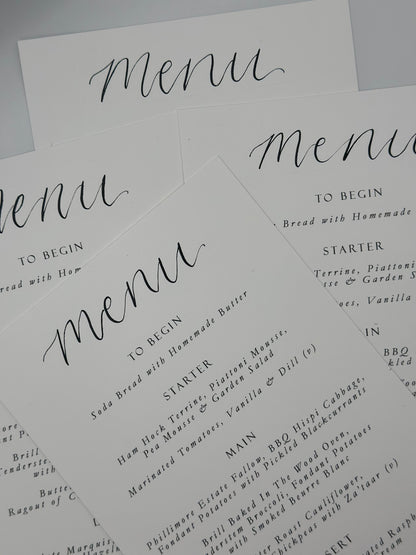 menu
menu
TO BEGIN
Bread with Homemade
STARTER
Terrine, Piattoni
Mousse & Garden Sala
Tomatoes, Vanilla
MAIN
BBQ
Pickled
menu
TO BEGIN
Bread with Hom
Brill
Tenderste
with
Butter
Ragout of C
menu
TO BEGIN
Soda Bread with Homemade Butter
STARTER
Ham Hock Terrine, Piattoni Mousse,
Pea Mousse & Garden Salad
Marinated Tomatoes, Vanilla & Dill (v)
MAIN
Phillimore Estate Fallow, BBQ Hispi Cabbage,
Fondant Potatoes with Pickled Blackcurrants
Brill Baked In The Wood Oven,
Tenderstem Broccoli, Fondant Potatoes
with Smoked Beurre Blanc
Roast Cauliflower,
Chickpeas with Za'taar (v)